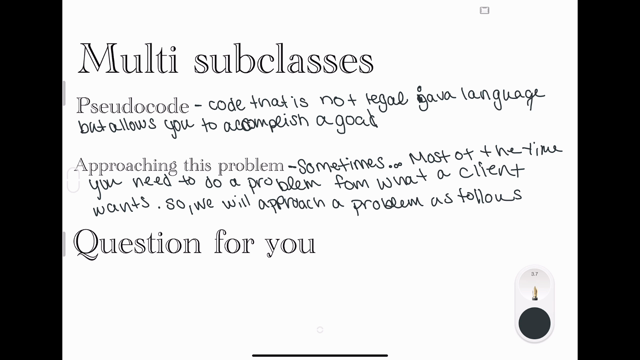 Multi subclasses
Pseudocode - code that is not legal java language
but allows you to accomplish a goal
Approaching this problem - Sometimes... Most of the time
you need to do a problem fom what a client
wants. So, we will approach a problem as follows
Question for you
0.7